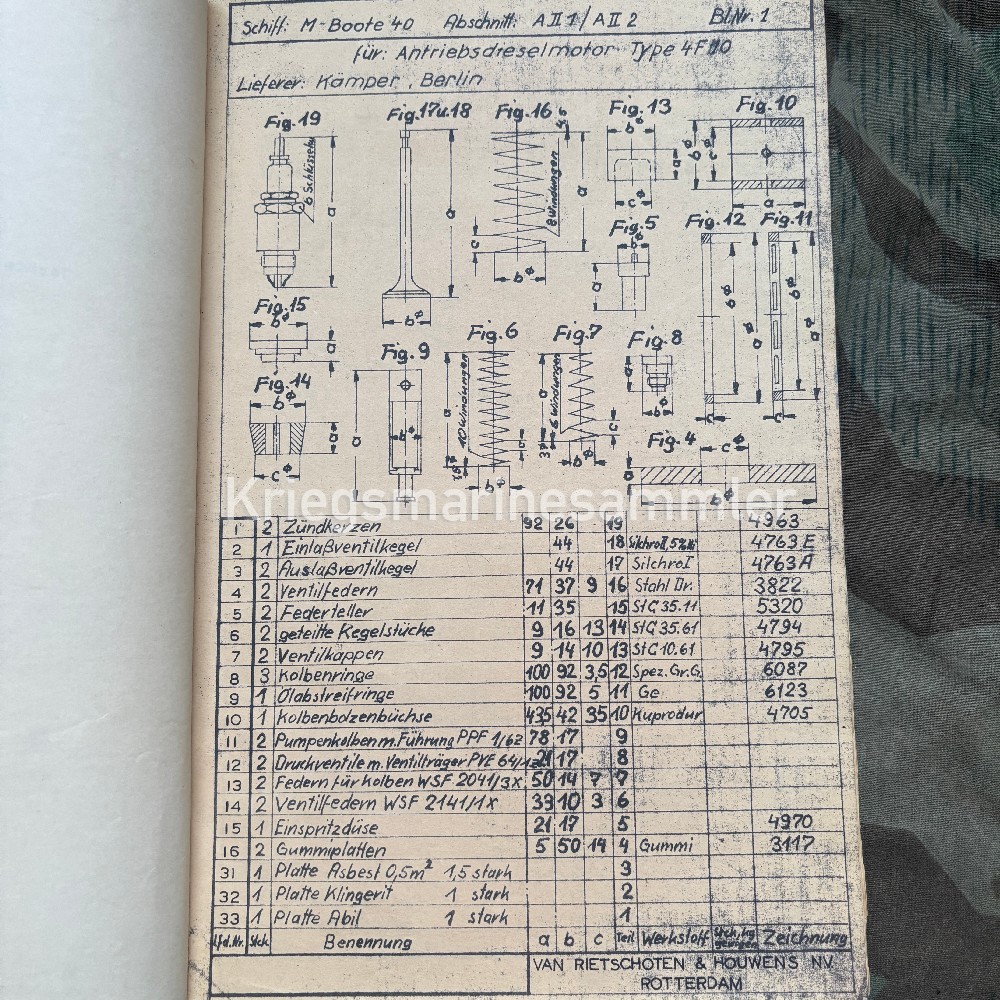 Schiff: M-Boote 40 Abschnitt: A II 1 / A II 2 Bl.Nr. 1
für: Antriebsdieselmotor Type 4F
Lieferer: Kämper, Berlin
Fig. 19 Fig. 17 u. 18 Fig. 16 Fig. 13 Fig. 10
b Schlüsselw a a 8 Windungen a c bø bø a cø bø cø a
Fig. 5 Fig. 12 Fig. 11
Fig. 15
Fig. 6 Fig. 7 Fig. 8
Fig. 9
Fig. 14
10 Windungen 6 Windungen
Fig. 4
Kriegsmarinesammler
1 2 Zündkerzen 92 26 19 4963
2 1 Einlaßventilkegel 44 18 4763 E
3 2 Auslaßventilkegel 44 17 Silchro I 4763 A
4 2 Ventilfedern 71 37 9 16 Stahl Dr. 3822
5 2 Federteller 11 35 15 StC 35.11 5320
6 2 geteilte Kegelstücke 9 16 13 14 StC 35.61 4794
7 2 Ventilkappen 9 14 10 13 StC 10.61 4795
8 3 Kolbenringe 100 92 3,5 12 Spez. Gr. G. 6087
9 1 Ölabstreifringe 100 92 5 11 Ge 6123
10 1 Kolbenbolzenbüchse 43,5 42 35 10 Kuprodur 4705
11 2 Pumpenkolben m. Führung PPF 1/6z 78 17 9
12 2 Druckventile m. Ventilträger PVE 64/ 17 8
13 2 Federn für Kolben WSF 2041/3x 50 14 7 7
14 2 Ventilfedern WSF 2141/1x 39 10 3 6
15 1 Einspritzdüse 21 17 5 4970
16 2 Gummiplatten 5 50 14 4 Gummi 3117
31 1 Platte Asbest 0,5m² 1,5 stark 3
32 1 Platte Klingerit 1 stark 2
33 1 Platte Abil 1 stark 1
Lfd.Nr. Stck. Benennung a b c Teil Werkstoff Zeichnung
VAN RIETSCHOTEN & HOUWENS NV.
ROTTERDAM